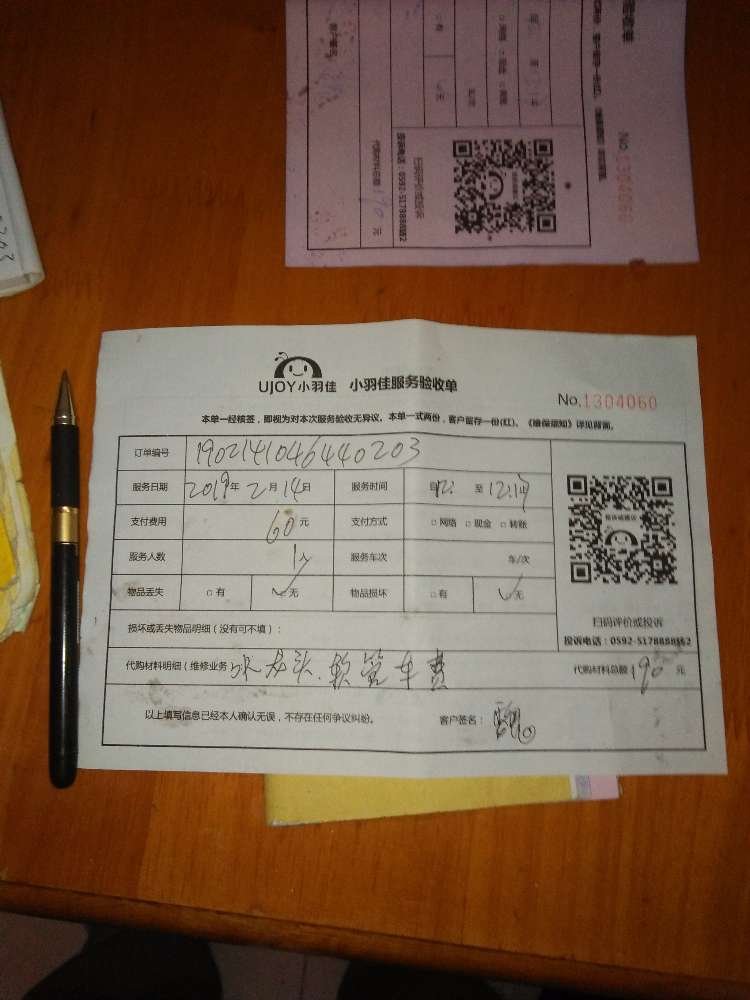 UJOY小羽佳 小羽佳服务验收单
No.1304060
本单一经核签，即视为对本次服务验收无异议。本单一式两份，客户留存一份(红)。《维保须知》详见背面。
订单编号 1902141046440203
服务日期 2019年2月14日 服务时间 自12: 至12:17
支付费用 60元 支付方式 □网络 □现金 □转账
服务人数 1人 服务车次 车/次
物品丢失 □有 ✓无 物品损坏 □有 ✓无
扫码评价或投诉
投诉电话：0592-5178888转2
损坏或丢失物品明细（没有可不填）：
代购材料明细（维修业务 水龙头.软管车费 代购材料总额190元
以上填写信息已经本人确认无误，不存在任何争议纠纷。 客户签名：
No.1304060
扫码评价或投诉
投诉电话：0592-5178888转2
代购材料总额190元